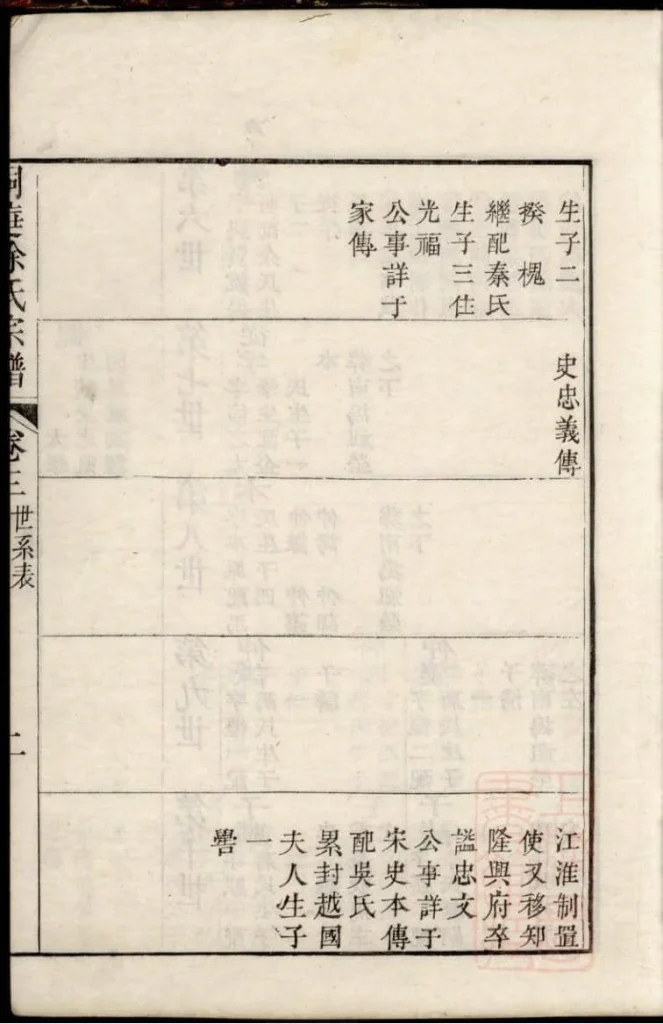 生子二
揆 槐
繼配秦氏
生子三住
光福
公事詳于
家傳
史忠義傳
江淮制置
使又移知
隆興府卒
謚忠文
公事詳于
宋史本傳
配吳氏
累封越國
夫人生子
一
嚳
洞庭徐氏宗譜
卷三
世系表
二